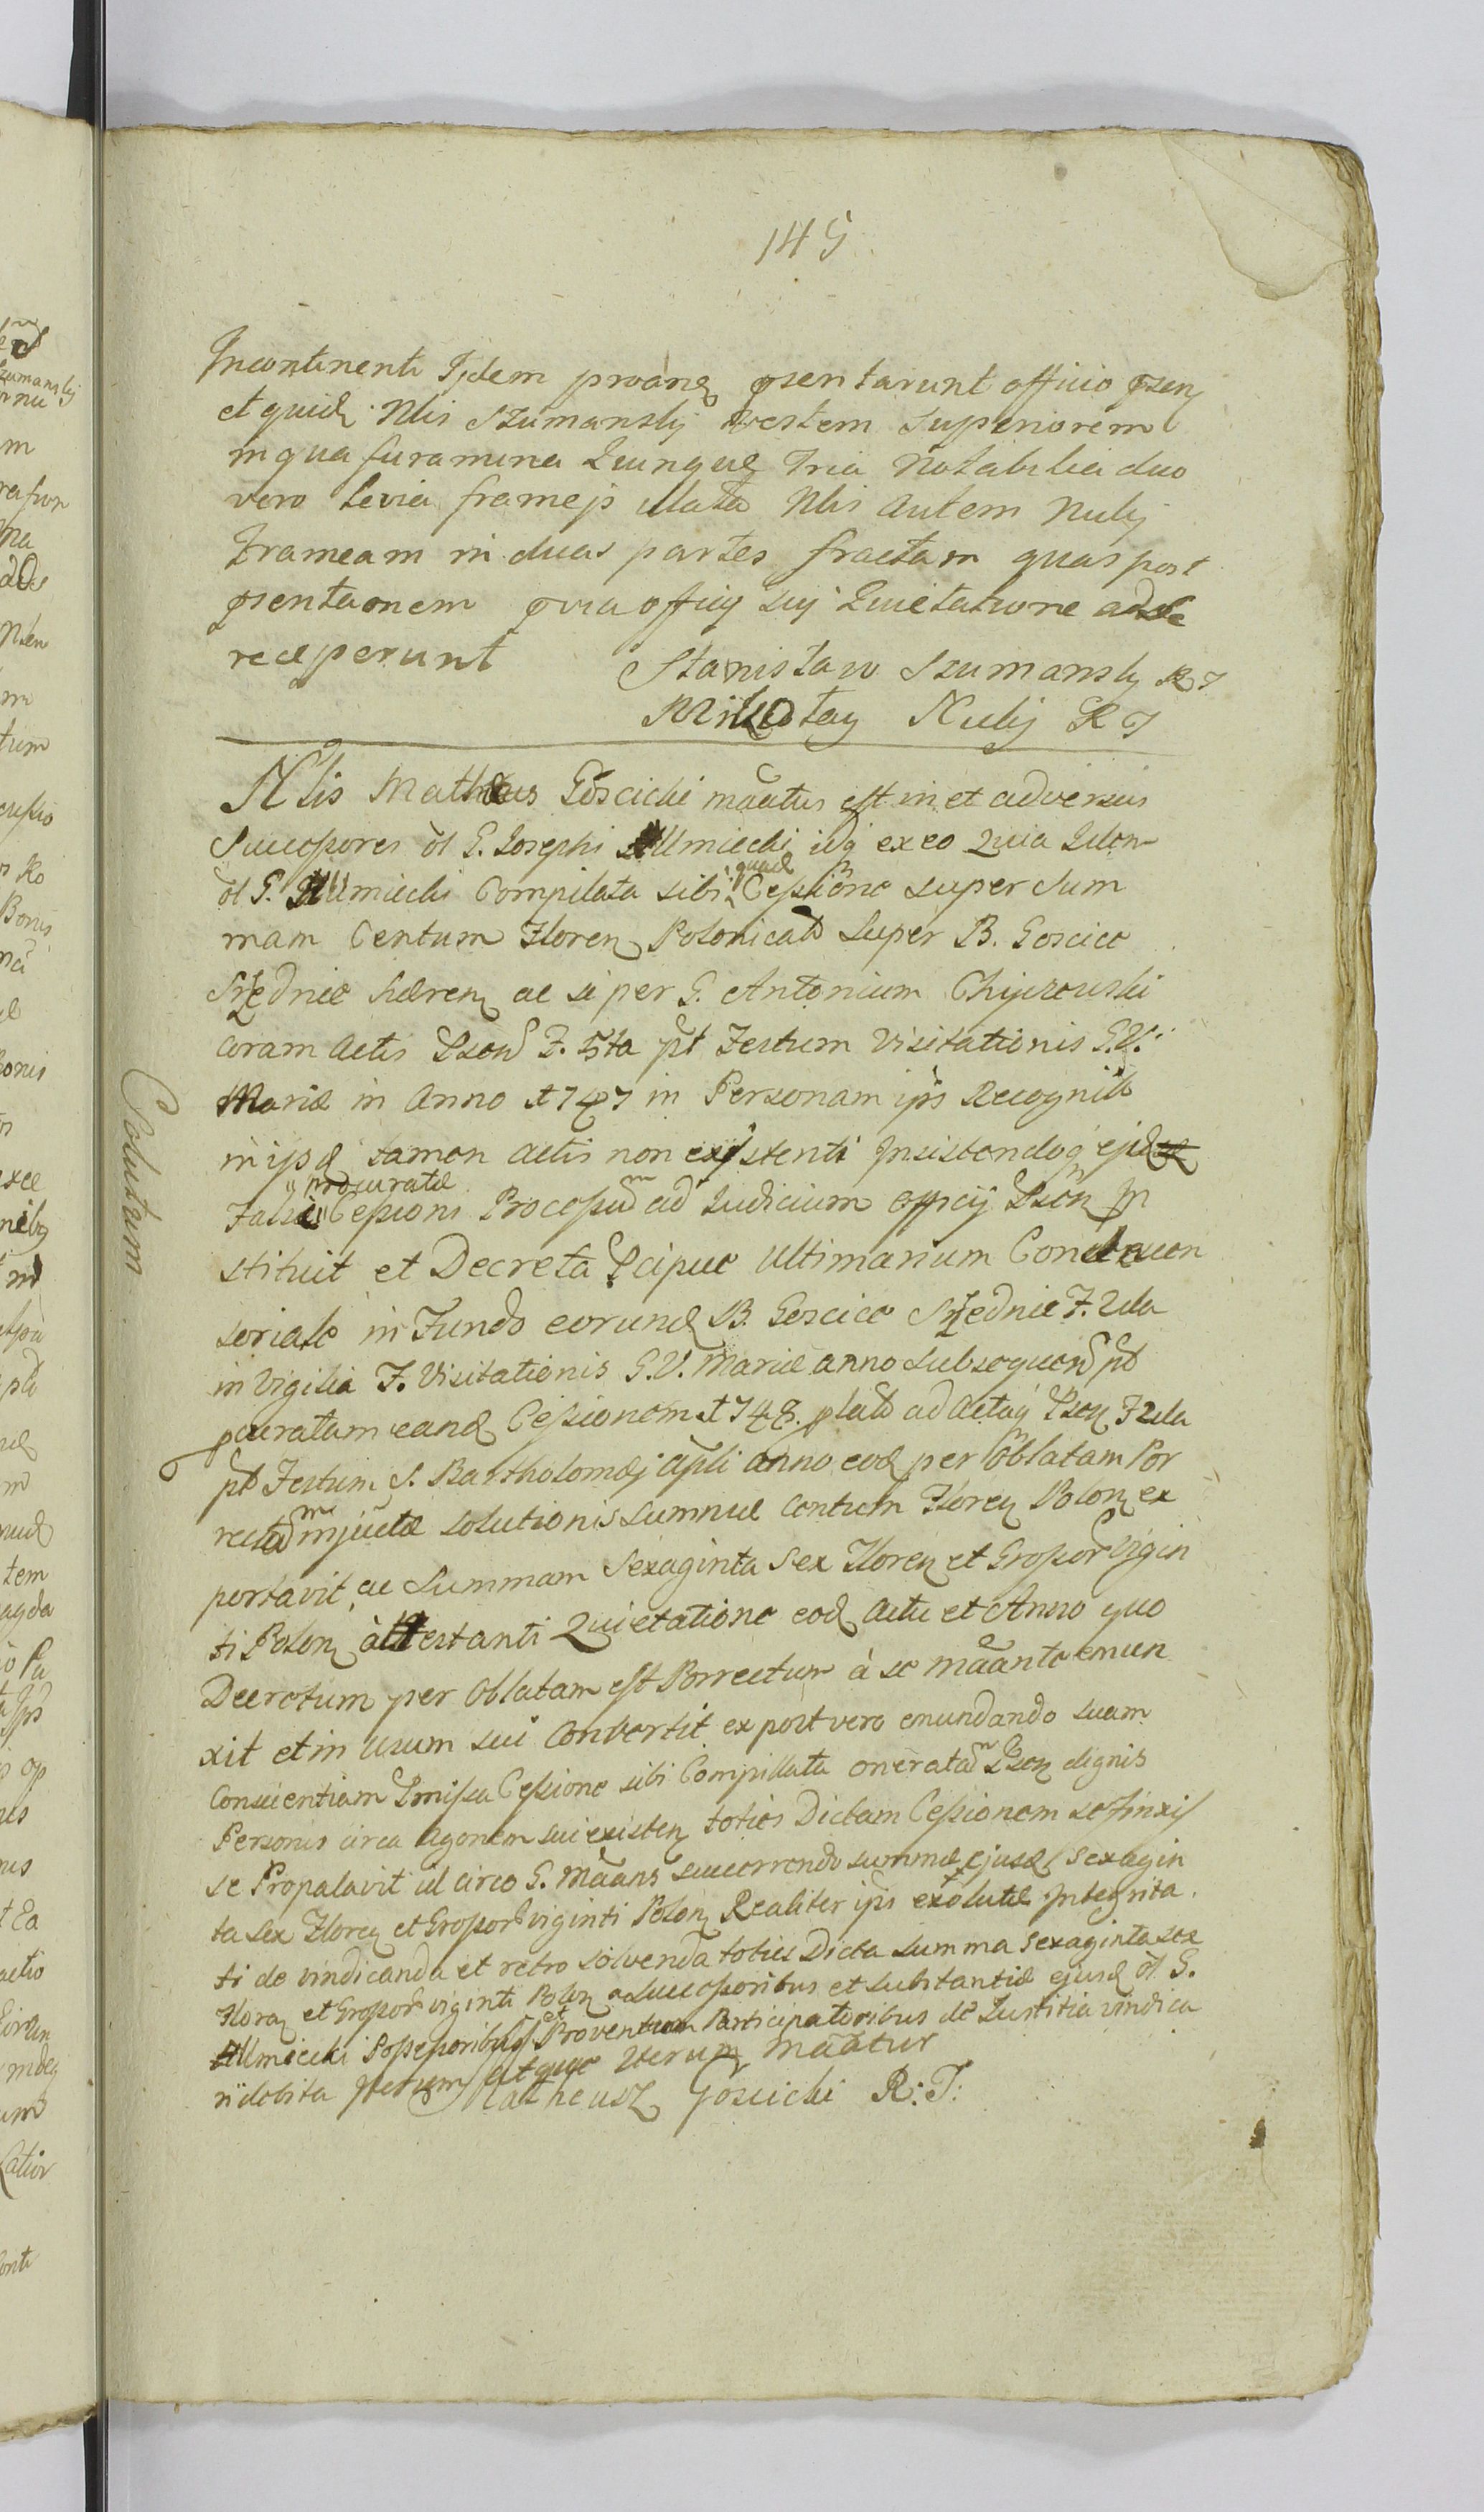 145
Incontinenti Ijdem proanѳ psentarunt officio psenѳ
et quidѳ Nlis Szumanskj vestem Superiorem
in qua furamina Quinque Tria Notabilia duo
vero levia frameis illata Nlis autem Nulij
Frameam in duas partes fractam quas post
psentaonem officij sui Quietatione ad se
receperunt
Stanisław Szumansky R I
Mikołay Nulij R I
Nlis Mathæus Goscicki maatus est in et adversus
Successores ol G. Josephi Ulmiecki idq ex eo Quia idem
quad
ol G. Ulmiecki Compilata sibi Cessione super Sum
mam Centum Floren Polonicaliu super B. Goscice
Srzednie hæren ac si per G. Antonium Chyczewski
coram actis F. 5ta pt Festum Visitationis G.V.
Mariæ in Anno 1747 in Personam ips Recognito
in ips tamen actis non existenti Insistendoq ejd
procuratæ
Falsæ Cessioni Processum ad Judicium officij In
stituit et Decreta Pcipue Ultimarium Condescen
soriale in Fundo eorund B. Goscice Srzednie F. 2da
in Vigilia F. Visitationis G.V. Mariæ anno subsequen pt
paratam eand Cessionem 1748. ad acta F 2da
pt Festum S. Bartholomæj Apli anno eod per Oblatam Por
recta injuctæ solutionis summæ Centum Floren Polon ex
portavit, ac Summam Sexaginta Sex Floren et Grossor Vigin
ti Polon attestanti Quietatione eod actu et Anno quo
Decretum per Oblatam est Porrectum à se maante emun
xit et in Usum sui Convertit ex post vero emundando suam
Conscientiam Pmissa Cessione sibi Compillata onerata dignis
Personis circa agonem sui existen toties Dictam Cessionem se finxis
se Propalavit id circo G. Maans succurrendo summæ ejusd Sexagin
ta sex Floren et Grossor viginti Polon Realiter ips exolutæ Integrita
ti de vindicanda et retro solvenda toties Dicta summa sexaginta sex
Floren et Grossor viginti Polon a Successoribus et substantiæ ejusd ol G.
Ulmiecki Possessoribus et Proventuum Participatoribus de Justitia vindica
ri debita Iterum atque Iterum maatur
Matheusz Goscicki R: I:
Solutum